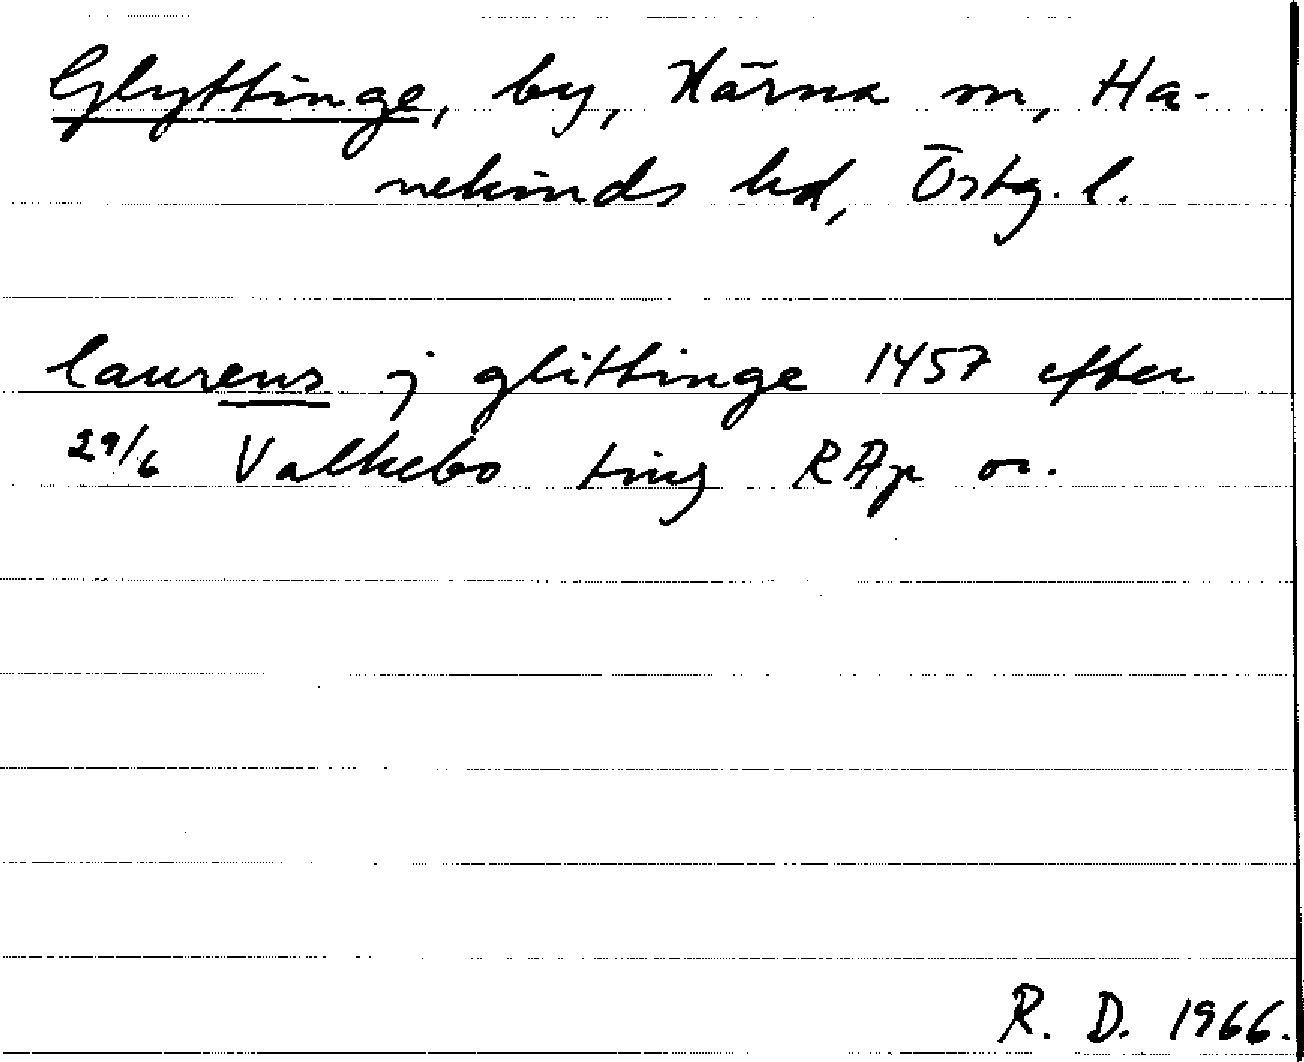 Glyttinge, by, Kärna sn, Ha-
nekinds hd, Östg. l.
laurens j glittinge 1457 efter
29/6 Valkebo ting RAp or.
R. D. 1966.